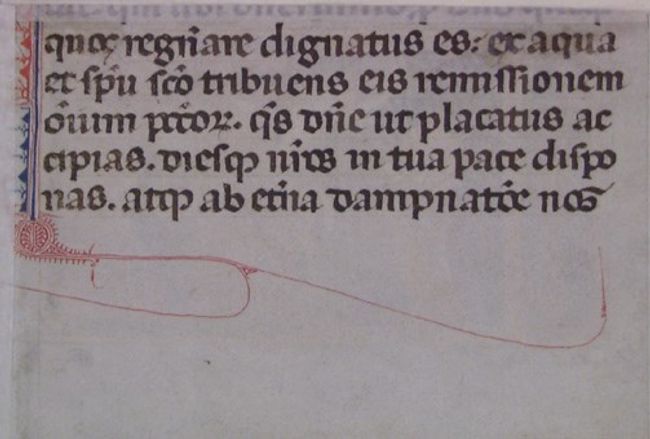 quoq; regn̄are dignatus es: ex aqua
et sp̄u sc̄o tribuens eis remissionem
ōium pctōꝝ. q̄s dn̄e ut placatus ac
cipias. diesqꝫ nr̄os in tua pace dispo
nas. atqꝫ ab et̄na dampnatōe nos